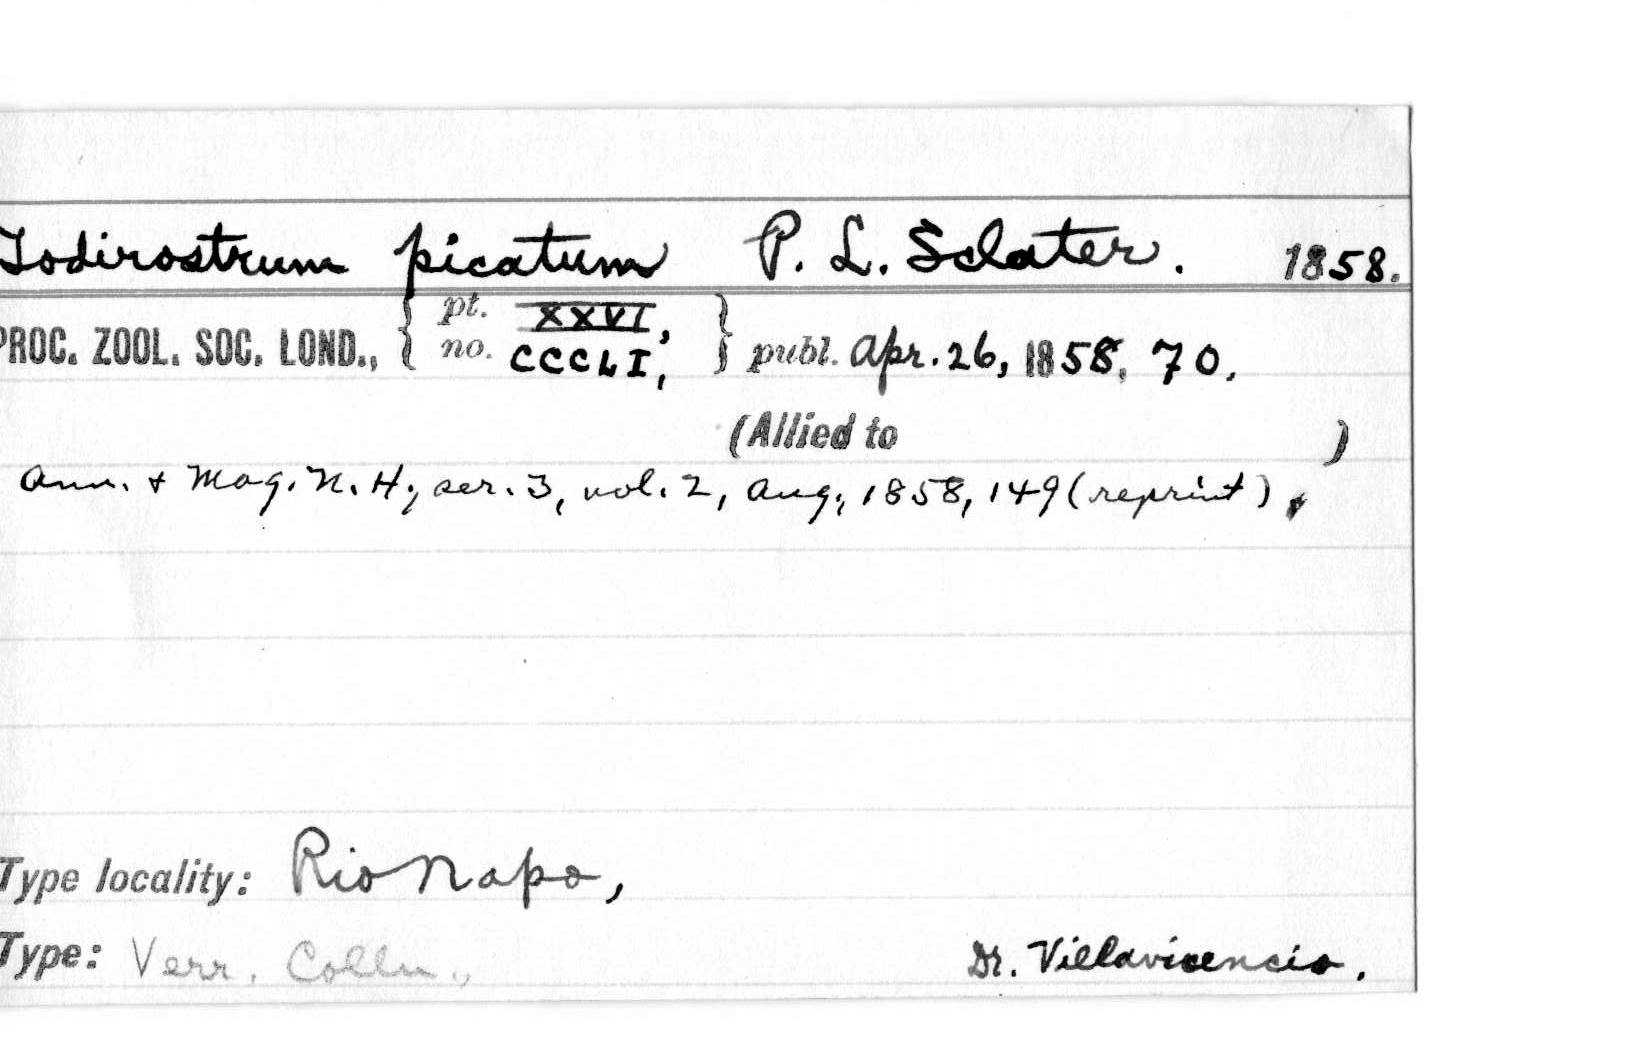 Todirostrum picatum P. L. Sclater. 1858.
PROC. ZOOL. SOC. LOND., { pt. XXVI, no. CCCLI, } publ. Apr. 26, 1858, 70.
(Allied to )
Ann. & Mag. N. H., ser. 3, vol. 2, Aug., 1858, 149 (reprint).
Type locality: Rio Napo,
Type: Verr. Colln., Dr. Villavicencio.